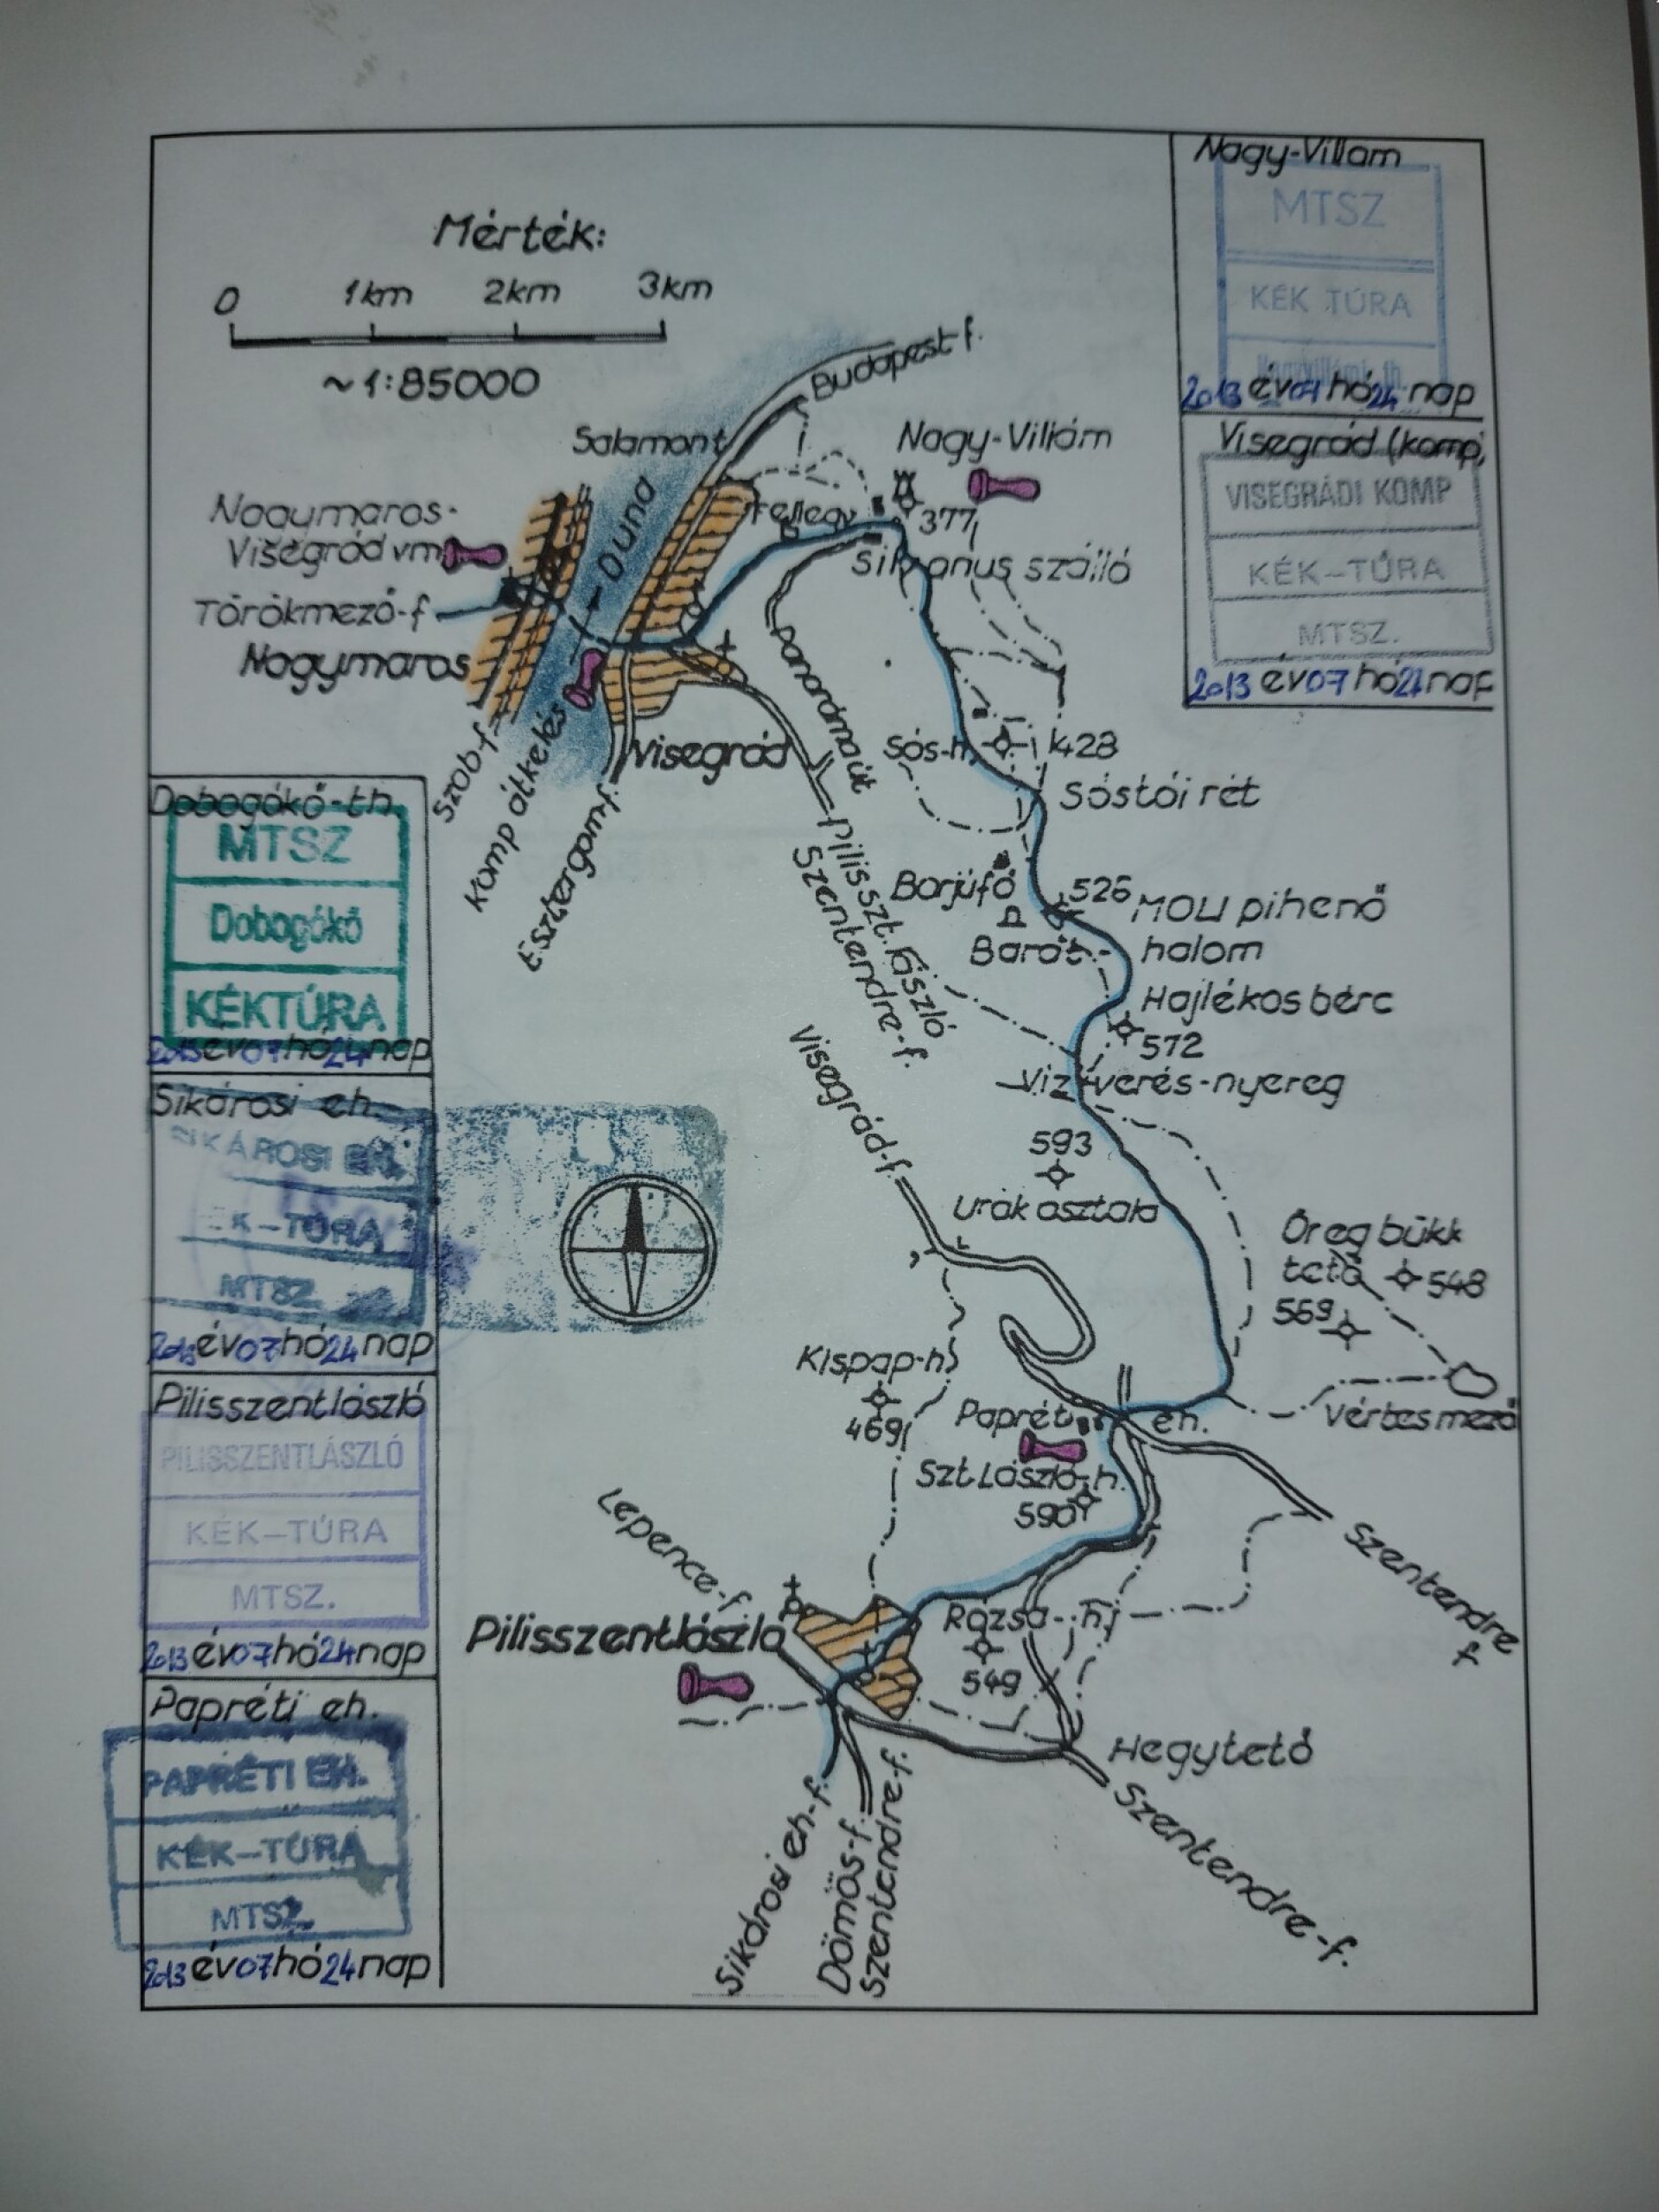 Nagy-Villám
MTSZ
KÉK TÚRA
2013 év 07 hó 24 nap
Visegrád (komp)
VISEGRÁDI KOMP
KÉK-TÚRA
MTSZ.
2013 év 07 hó 21 nap
Mérték:
0 1km 2km 3km
~1:85000
Budapest f.
Salamont
Nagy-Villám
Nagymaros-
Visegrád vm
Duna
Fellegv.
377
Silvanus szálló
Törökmező-f
Nagymaros
panorámaút
Szob f.
Komp átkelés
Esztergom f.
Visegrád
Sós-h.
428
Sóstói rét
Pilisszt.lászló
Szentendre-f.
Borjúfő
526
MOLI pihenő
Barát-
halom
Hajlékos bérc
572
Viz verés-nyereg
Visegrád-f.
593
Urak asztala
Öreg bükk
tető
548
569
Kispap-h
469
Paprét
eh.
Vértes mező
Szt.László-h.
590
Lepence-f.
Szentendre
f.
Pilisszentlászló
Rózsa-h
549
Hegytető
Szentendre-f.
Sikárosi eh-f.
Dömös-f.
Szentendre-f.
Dobogókő-th.
MTSZ
Dobogókő
KÉKTÚRA
2013 év 07 hó 24 nap
Sikárosi eh.
SIKÁROSI EH.
K-TÚRA
MTSZ
2013 év 07 hó 24 nap
Pilisszentlászló
PILISSZENTLÁSZLÓ
KÉK-TÚRA
MTSZ.
2013 év 07 hó 24 nap
Papréti eh.
PAPRÉTI EH.
KÉK-TÚRA
MTSZ.
2013 év 07 hó 24 nap